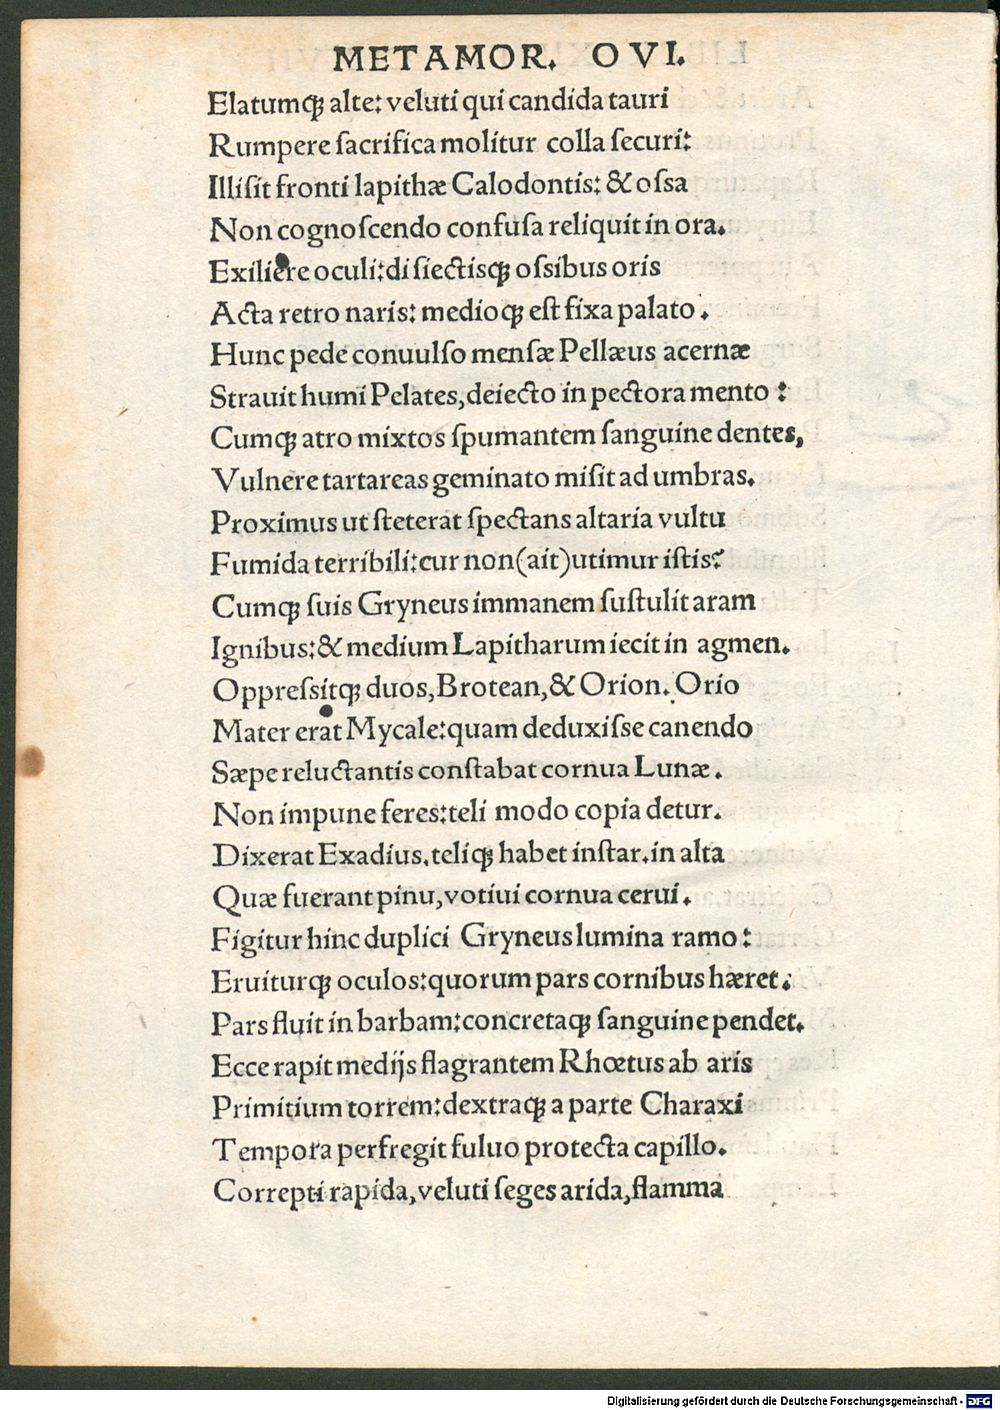 METAMOR. OVI.
Elatumqꝫ alte: veluti qui candida tauri
Rumpere ſacrifica molitur colla ſecuri:
Illiſit fronti lapithæ Calodontis: & oſſa
Non cognoſcendo confuſa reliquit in ora.
Exiliere oculi: diſiectisqꝫ oſſibus oris
Acta retro naris: medioqꝫ eſt fixa palato.
Hunc pede conuulſo menſæ Pellæus acernæ
Strauit humi Pelates, deiecto in pectora mento:
Cumqꝫ atro mixtos ſpumantem ſanguine dentes,
Vulnere tartareas geminato miſit ad umbras.
Proximus ut ſteterat ſpectans altaria vultu
Fumida terribili: cur non (ait) utimur iſtis?
Cumqꝫ ſuis Gryneus immanem ſuſtulit aram
Ignibus: & medium Lapitharum iecit in agmen.
Oppreſſitqꝫ duos, Brotean, & Orion. Orio
Mater erat Mycale: quam deduxiſſe canendo
Sæpe reluctantis conſtabat cornua Lunæ.
Non impune feres: teli modo copia detur.
Dixerat Exadius. teliqꝫ habet inſtar. in alta
Quæ fuerant pinu, votiui cornua cerui.
Figitur hinc duplici Gryneus lumina ramo:
Eruiturqꝫ oculos: quorum pars cornibus hæret.
Pars fluit in barbam: concretaqꝫ ſanguine pendet.
Ecce rapit medijs flagrantem Rhœtus ab aris
Primitium torrem: dextraqꝫ a parte Charaxi
Tempora perfregit fuluo protecta capillo.
Correpti rapida, veluti ſeges arida, flamma
Digitalisierung gefördert durch die Deutsche Forschungsgemeinschaft - DFG